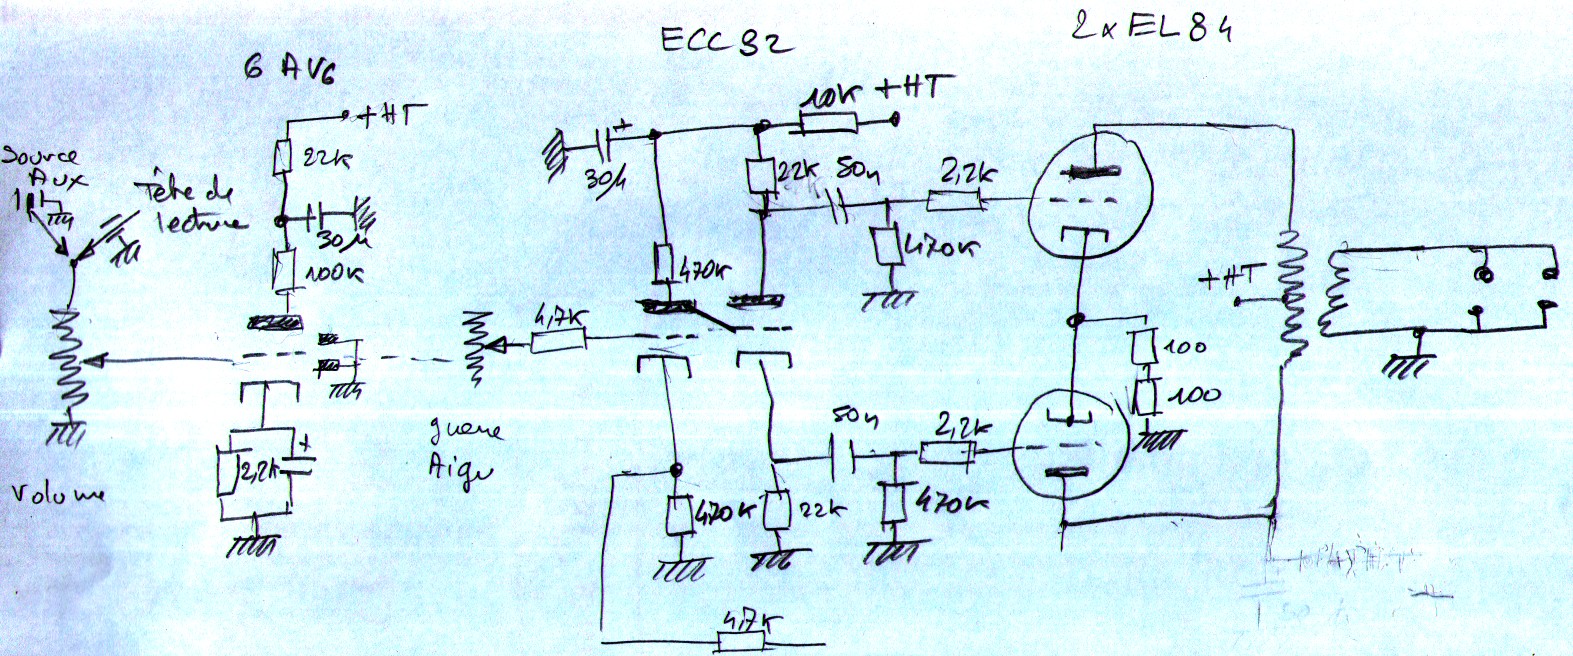 2xEL84
ECC82
6 AV6
+HT
10K +HT
Source
Aux
22K
Tête de
lecture
30µ
30µ
22K
50n
2,2K
470K
100K
470K
+HT
4,7K
100
100
50n
2,2K
grave
Aigu
2,2K
Volume
470K
22K
470K
4,7K